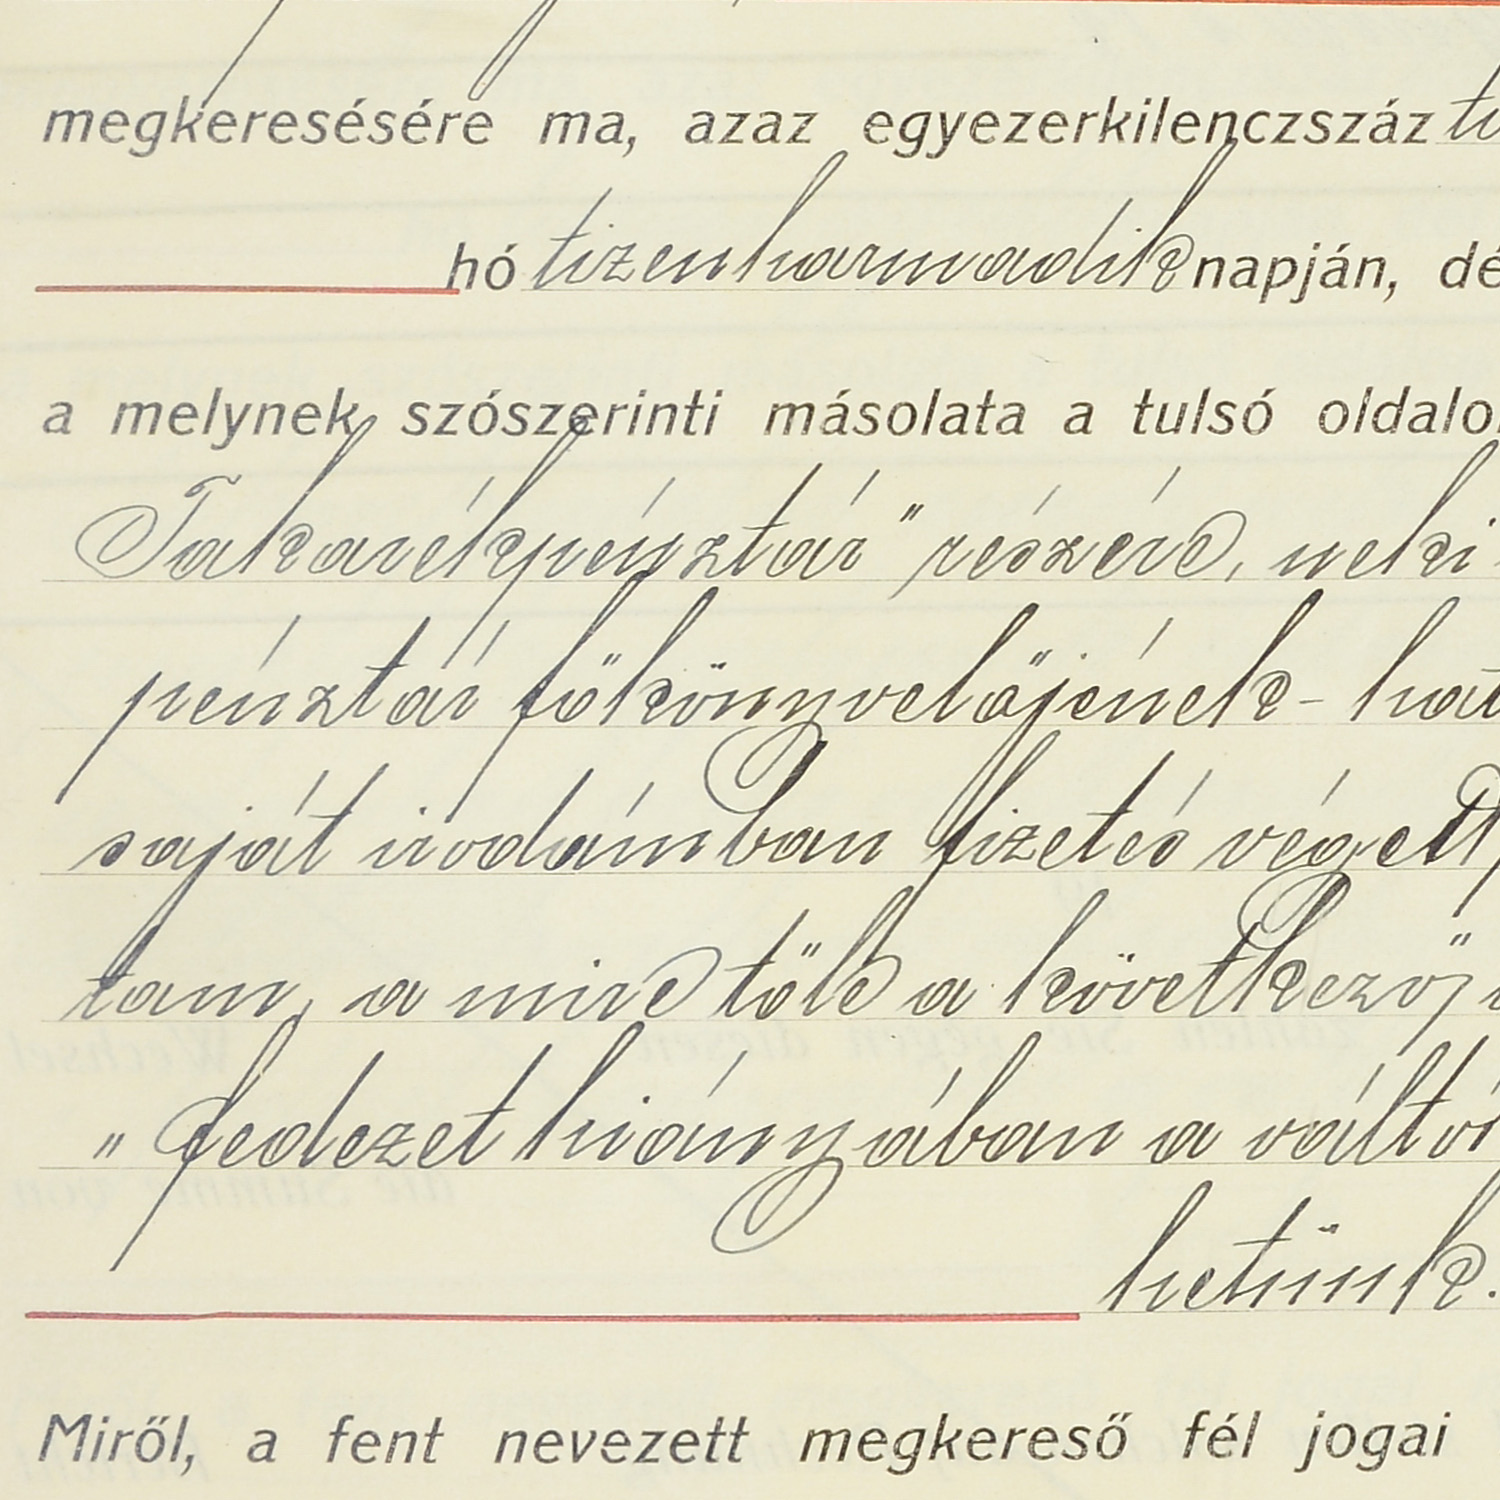 megkeresésére ma, azaz egyezerkilenczszáz
hó tizenharmadik napján, dé
a melynek szószerinti másolata a tulsó oldalo
Takarékpénztár" részére, neki
pénztár főkönyvelőjének - hat
saját irodámban fizetés végett,
tam, a mire tőle a következő
„fedezet hiányában a váltót
hetünk.
Miről, a fent nevezett megkereső fél jogai